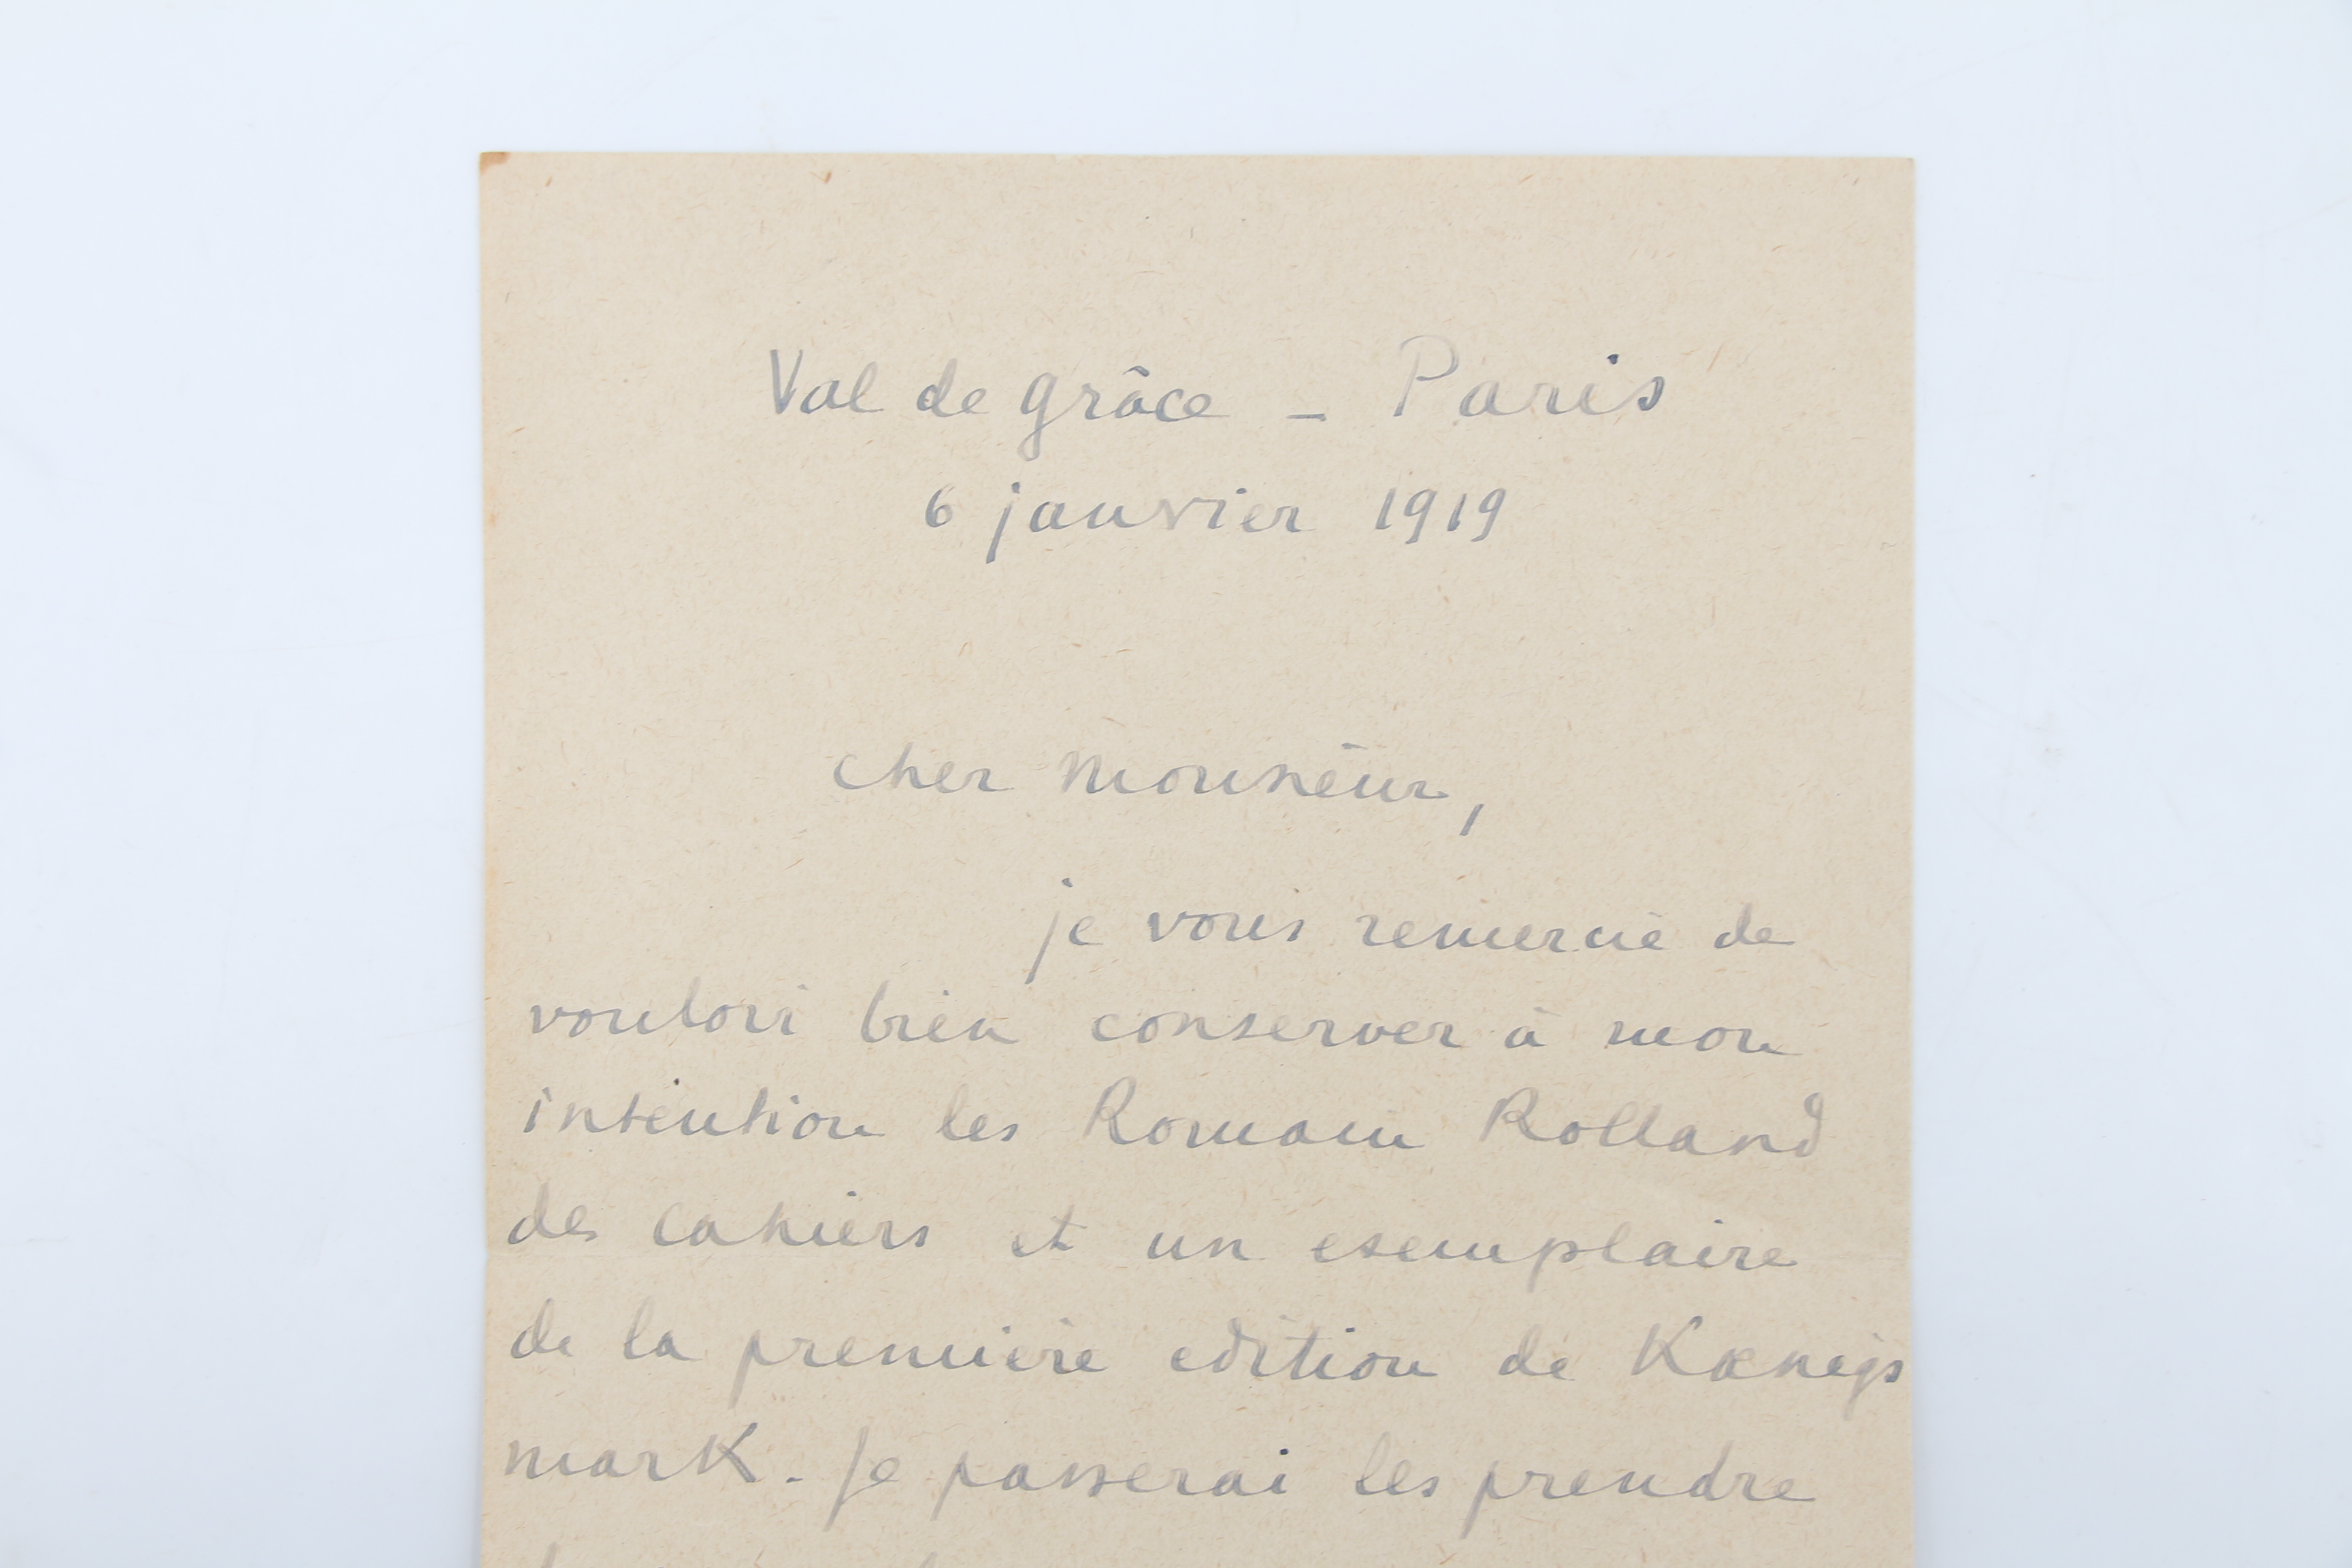 Val de grâce - Paris
6 janvier 1919
cher monsieur,
je vous remercie de
vouloir bien conserver à mon
intention les Romain Rolland
des cahiers et un exemplaire
de la première edition de Kœnigs
mark. Je passerai les prendre